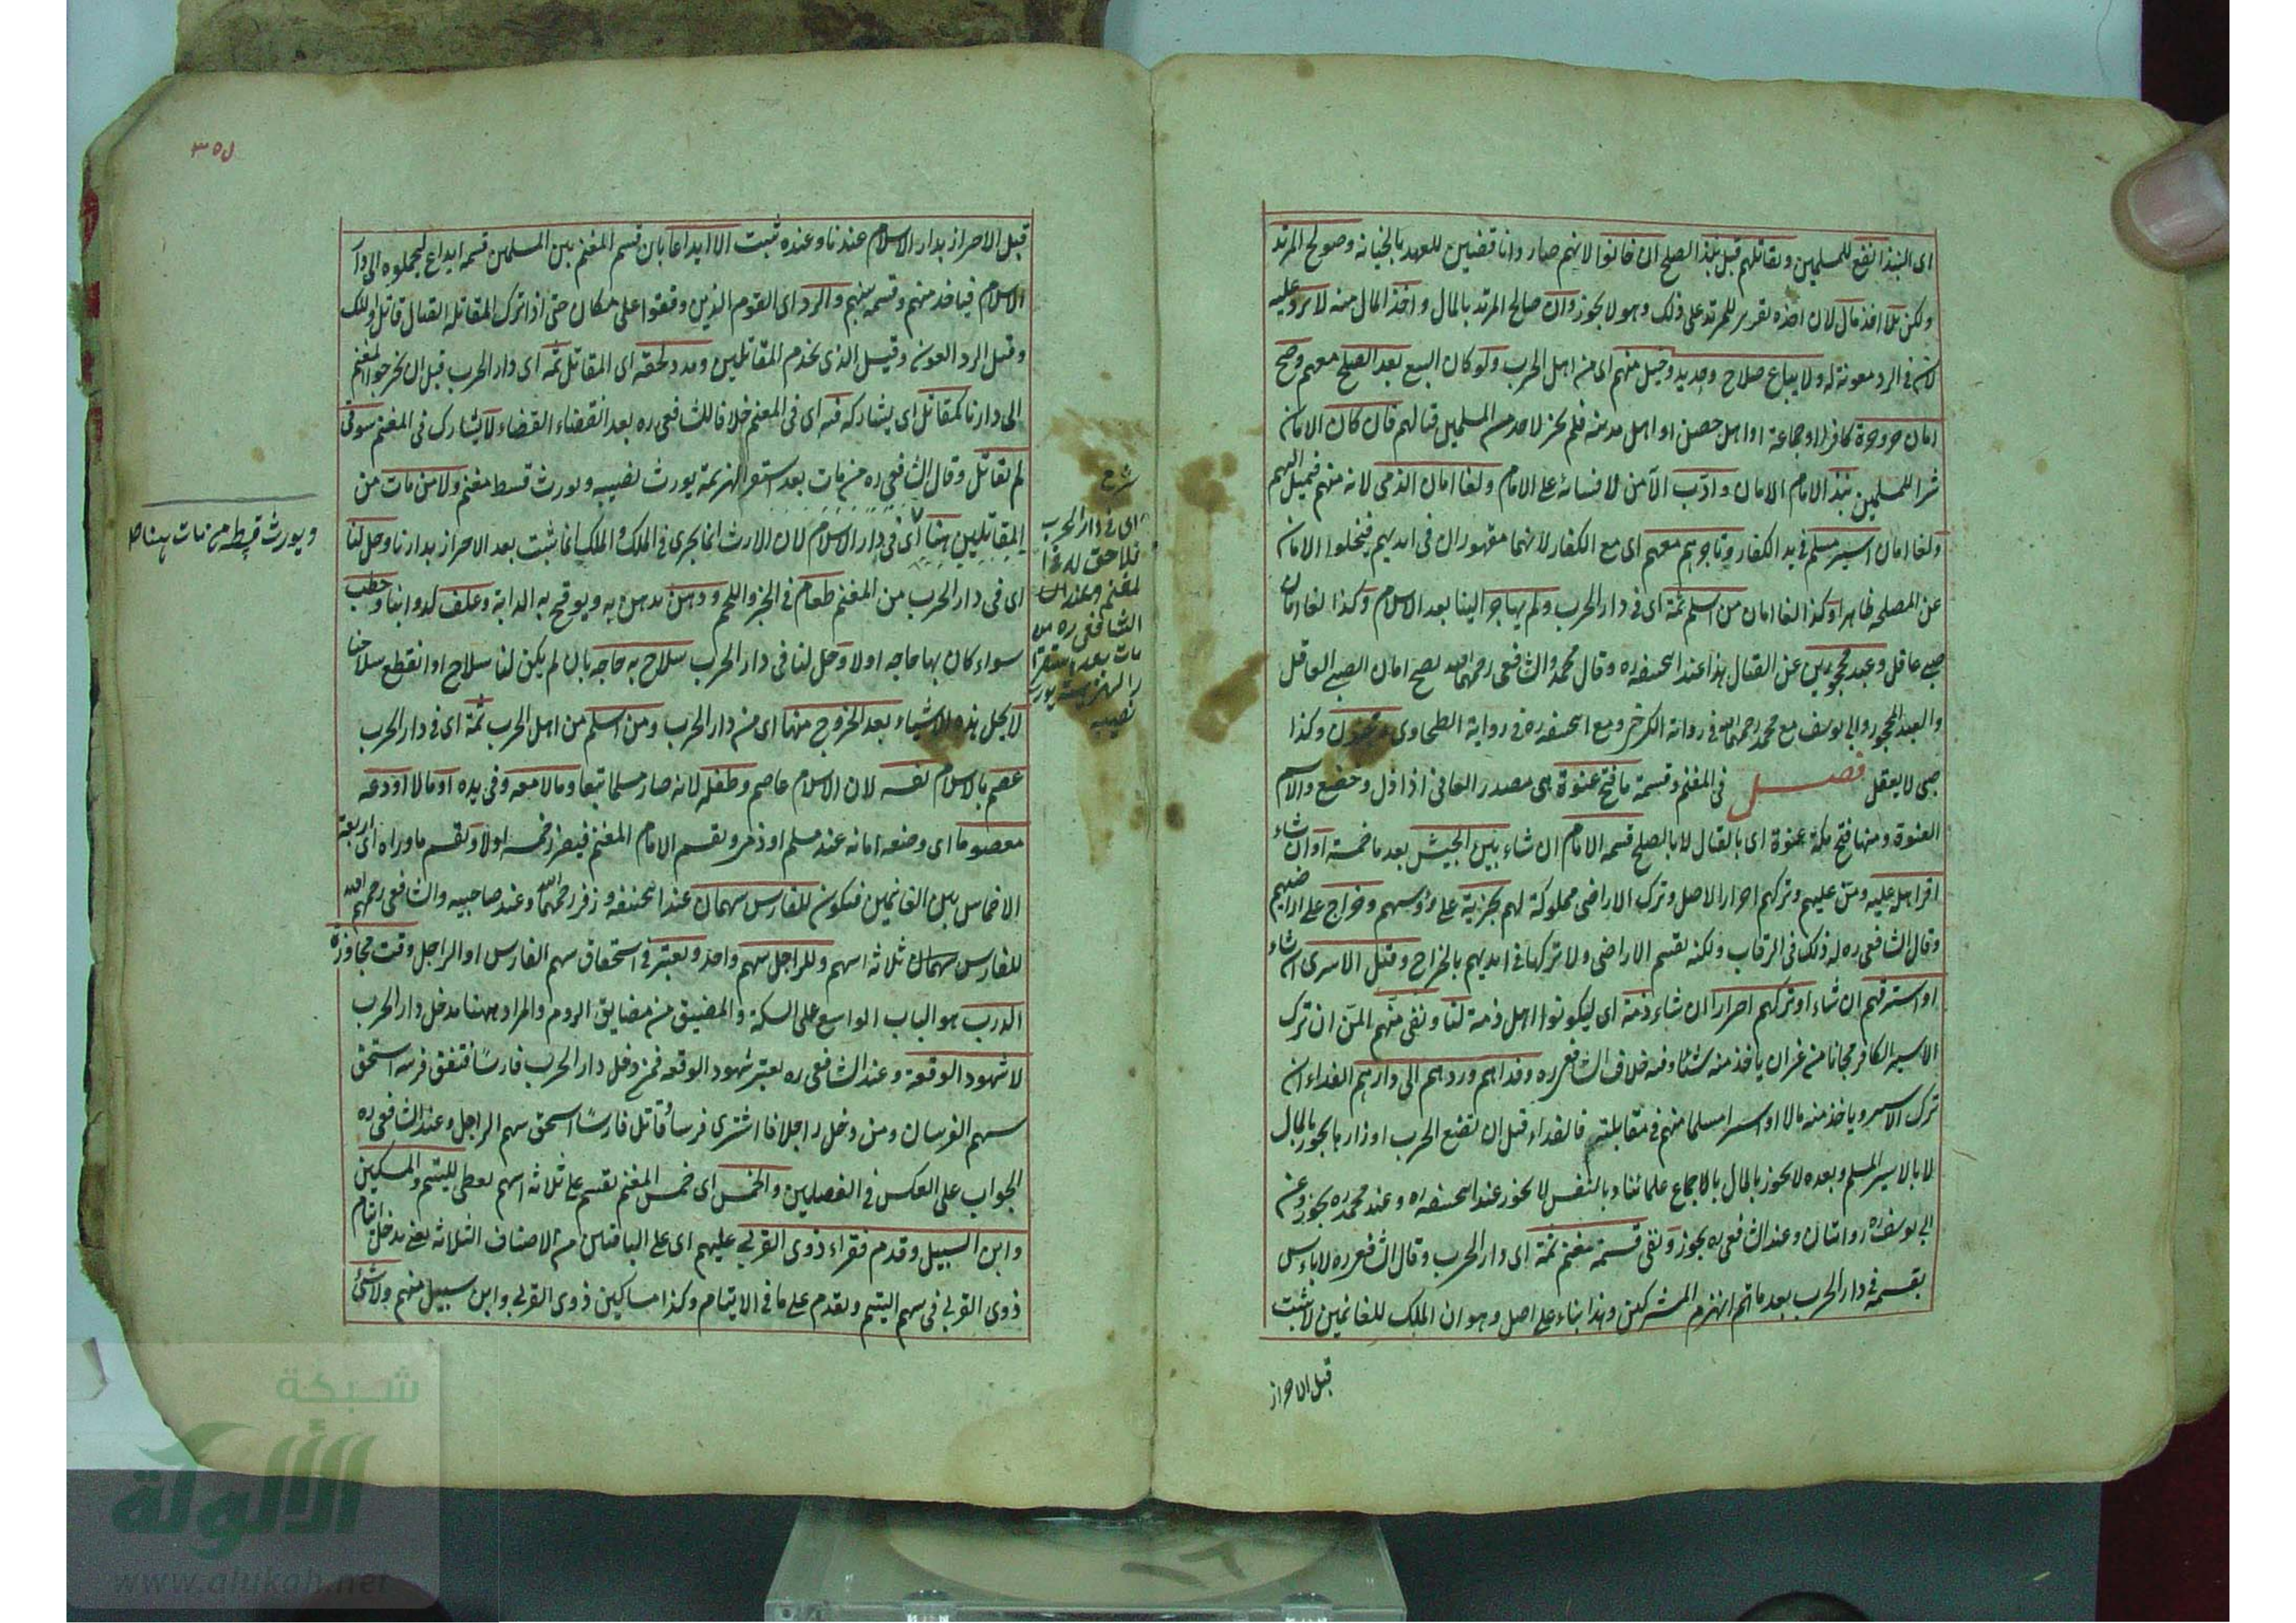 اى النبذ انفع للمسلمين ويقاتلهم قبل نبذ الصلح ان خانوا لانهم صاروا ناقضين للعهد بالخيانة وصولح المرتد
ولكن بلا اخذ مال لان اخذه تقرير للمرتد على ذلك وهو لا يجوز وان صالح المرتد بالمال واخذ المال منه لا يرد عليه
لان فى الرد معونة له ولا يباع صلاح وحديد وخيل منهم اى من اهل الحرب ولو كان البيع بعد الصلح معهم وصح
امان حر وحرة كافرا او جماعة او اهل حصن او اهل مدينة فلم يجز لاحد من المسلمين قتالهم فان كان الامان
شرا للمسلمين نبذ الامام الامان وادب الآمن لافتياته على الامام ولغا امان الذمى لانه منهم فيميل اليهم
ولغا امان اسير مسلم فى يد الكفار وتاجرهم معهم اى مع الكفار لانهما مقهوران فى ايديهم فيخلوا الامان
عن المصلحة ظاهرا وكذا لغا امان من اسلم ثمة اى فى دار الحرب ولم يهاجر الينا بعد الاسلام وكذا لغا امان
صبى عاقل وعبد محجورين عن القتال هذا عند ابحنيفه ره وقال محمد والشافعى رحمهما الله يصح امان الصبى العاقل
والعبد المحجور وابى يوسف مع محمد رحمهما الله فى رواية الكرخى ومع ابحنيفه ره فى رواية الطحاوى ومجنون وكذا
صبى لا يعقل فصل فى المغنم وقسمة ما فتح عنوة هى مصدر العانى اذا ذل وخضع والاسم
العنوة ومنها فتح مكة عنوة اى بالقتال لا بالصلح قسمه الامام ان شاء بين الجيش بعد ما خمسه او ان شاء
اقر اهله عليه ومن عليهم وتركهم احرار الاصل وترك الاراضى مملوكة لهم بجزية على رؤسهم وخراج على اراضيهم
وقال الشافعى ره له ذلك فى الرقاب ولكنه يقسم الاراضى ولا تركها فى ايديهم بالخراج وقتل الاسرى ان شاء
او استرقهم ان شاء او تركهم احرارا ان شاء ذمة اى ليكونوا اهل ذمة لنا ونفى منهم المن ان ترك
الاسير الكافر مجانا من غير ان ياخذ منه شيئا وفيه خلاف الشافعى ره وفداهم وردهم الى دارهم الفداء ان
ترك الاسير وياخذ منه مالا او اسيرا مسلما منهم فى مقابلته فالفداء قبل ان تضع الحرب اوزارها يجوز بالمال
لا بالاسير المسلم وبعده لا يجوز بالمال بالاجماع علمائنا وبالنفس لا يجوز عند ابحنيفه ره وعند محمد ره يجوز وعن
ابى يوسف ره روايتان وعند الشافعى ره يجوز ونفى قسمة مغنم ثمة اى دار الحرب وقال الشافعى ره لا باس
بقسمه فى دار الحرب بعد ما تم انهزم المشركين وهذا بناء على اصل وهو ان الملك للغانمين لا يثبت
قبل الاحراز
٣٥٧
قبل الاحراز بدار الاسلام عندنا وعنده ثبت الا ايداعا بان قسم المغنم بين المسلمين قسمة ايداع ليحملوه الى دار
الاسلام فياخذ منهم وقسمه بينهم والرد اى القوم الذين وقفوا على مكان حتى اذا ترك المقاتلة القتال قاتل اولئك
وقيل الرد العون وقيل الذى يخدم المقاتلين ومدد لحقه اى المقاتل ثمه اى دار الحرب قبل ان يخرجوا المغنم
الى دارنا كمقاتل اى يشاركه فيه اى فى المغنم خلافا للشافعى ره بعد انقضاء القضاء لا يشارك فى المغنم سوقى
لم يقاتل وقال الشافعى ره من مات بعد استقر الهزيمة يورث نصيبه ويورث قسط مغنم ولا من مات من
المقاتلين هنا اى فى دار الاسلام لان الارث انما يجرى فى الملك والملك انما ثبت بعد الاحراز بدارنا وحل لنا
اى فى دار الحرب من المغنم طعام فى الخبز واللحم ودهن يدهن به ويوقح به الدابة وعلف لدوابنا وحطب
سواء كان بها حاجه او لا وحل لنا فى دار الحرب سلاح به حاجه بان لم يكن لنا سلاح او انقطع سلاحنا
لا يحل هذه الاشياء بعد الخروج منها اى من دار الحرب ومن اسلم من اهل الحرب ثمة اى فى دار الحرب
عصم بالاسلام نفسه لان الاسلام عاصم وطفله لانه صار مسلما تبعا ومالا معه وفى يده او مالا اودعه
معصوما اى وضعه امانه عند مسلم او ذمى ويقسم الامام المغنم فيفرز خمسه اولا ويقسم ما وراه اى اربعة
الاخماس بين الغانمين فيكون للفارس سهمان عند ابحنيفه وزفر رحمهما الله وعند صاحبيه والشافعى رحمهم الله
للفارس ثلاثة اسهم وللراجل سهم واحد ويعتبر فى استحقاق سهم الفارس او الراجل وقت مجاوزة
الدرب هو الباب الواسع على السكة والمضيق من مضايق الروم والمراد ههنا مدخل دار الحرب
لا شهود الوقعة وعند الشافعى ره يعتبر شهود الوقعه فمن دخل دار الحرب فارسًا فنفق فرسه استحق
سهم الفرسان ومن دخل راجلا فاشترى فرسا وقاتل فارسًا استحق سهم الراجل وعند الشافعى ره
الجواب على العكس فى الفصلين والخمس اى خمس المغنم يقسم على ثلاثة اسهم يعطى لليتيم والمسكين
وابن السبيل وقدم فقراء ذوى القربى عليهم اى على الباقين من الاصناف الثلاثة يعنى يدخل ايتام
ذوى القربى فى سهم اليتيم ويقدم على ما فى الايتام وكذا مساكين ذوى القربى وابن سبيل منهم ولا شئ
شرح
اى فى دار الحرب
فلا حق له فى ا
لمغنم وعند
الشافعى ره من
مات بعد استقرا
ر الهزيمة يورث
نصيبه
ويورث قسطه من مات هنا صح
شبكة
الألوكة
www.alukah.net